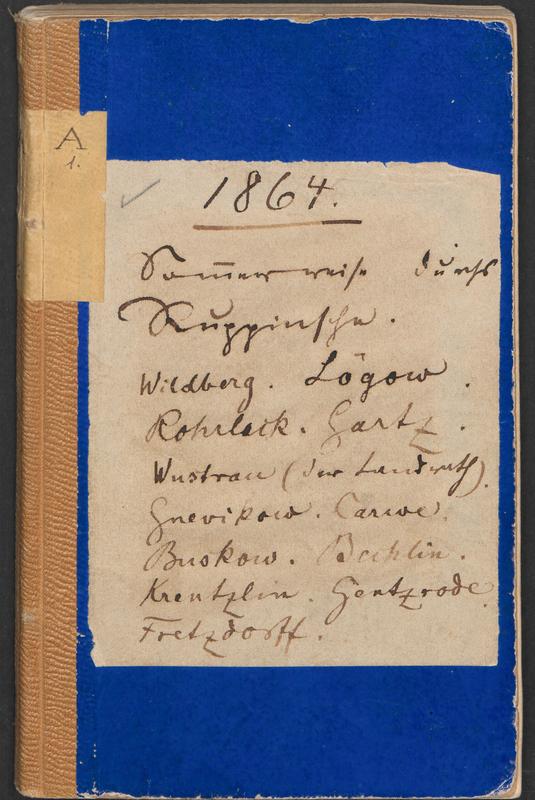 A
1.
1864.
Sommerreise durchs
Ruppinsche.
Wildberg. Lögow.
Rohrlack. Gartz.
Wustrau (der Landrath).
Gnevikow. Carwe.
Buskow. Bechlin.
Krentzlin. Gentzrode.
Fretzdorff.